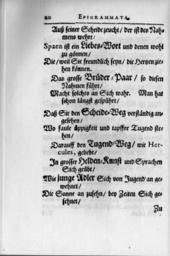 EPIGRAMMATA.
Auß seiner Scheide zeucht/ der ist des Nah-
mens wehrt;
Spaen ist ein Liebes-Wort und denen wohl
zu gönnen/
Die/ weil Sie freundlich seyn/ die Hertzen zie-
hen können.
Das grosse Brüder-Paar/ so diesen
Nahmen führt/
Macht solches an Sich wahr. Man hat
schon längst gespührt/
Daß Sie den Scheide-Weg verständig an-
gesehen/
Wo faule üppigkeit und tapffre Tugend ste-
hen/
Darauff den Tugend-Weg/ wie Her-
cules, geliebt/
In grosser Helden-Kunst und Sprachen
Sich geübt/
Wie junge Adler Sich von Jugend an ge-
wehnet/
Die Sonne an zusehn/ bey Zeiten Sich ge-
sehnet/
Zu